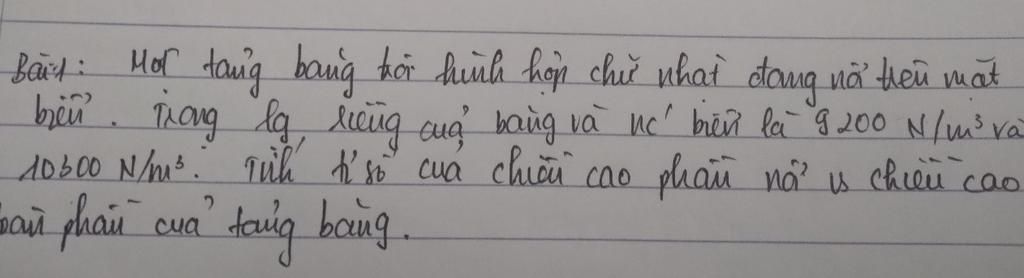 Bài1: Một tảng băng trôi hình hộp chữ nhật đang nổi trên mặt
biển. Trọng lg riêng của băng và nc' biển là 9200 N/m³ và
10300 N/m³. Tính tỉ số của chiều cao phần nổi vs chiều cao
toàn phần của tảng băng.